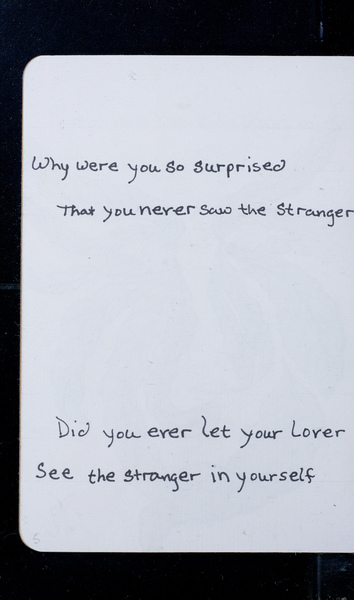 Why were you so surprised
That you never saw the Stranger
Did you ever let your Lover
See the Stranger in yourself
5